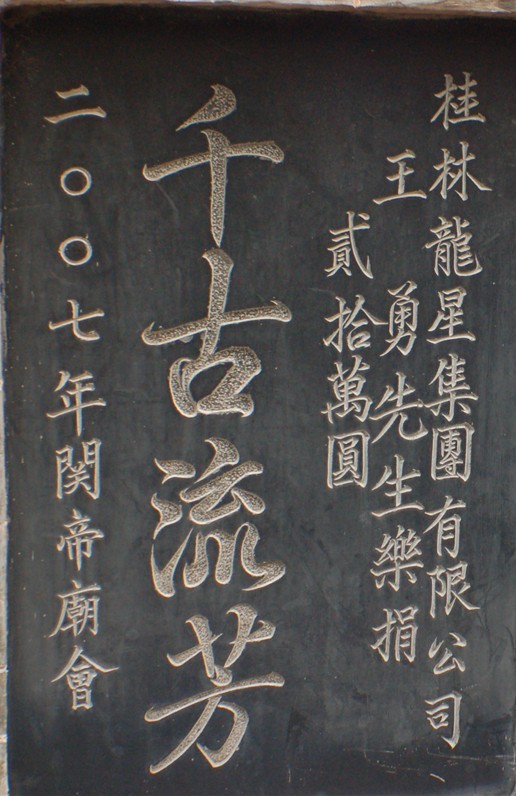 桂林龍星集團有限公司
王勇先生樂捐
貳拾萬圓
千古流芳
二〇〇七年関帝廟會